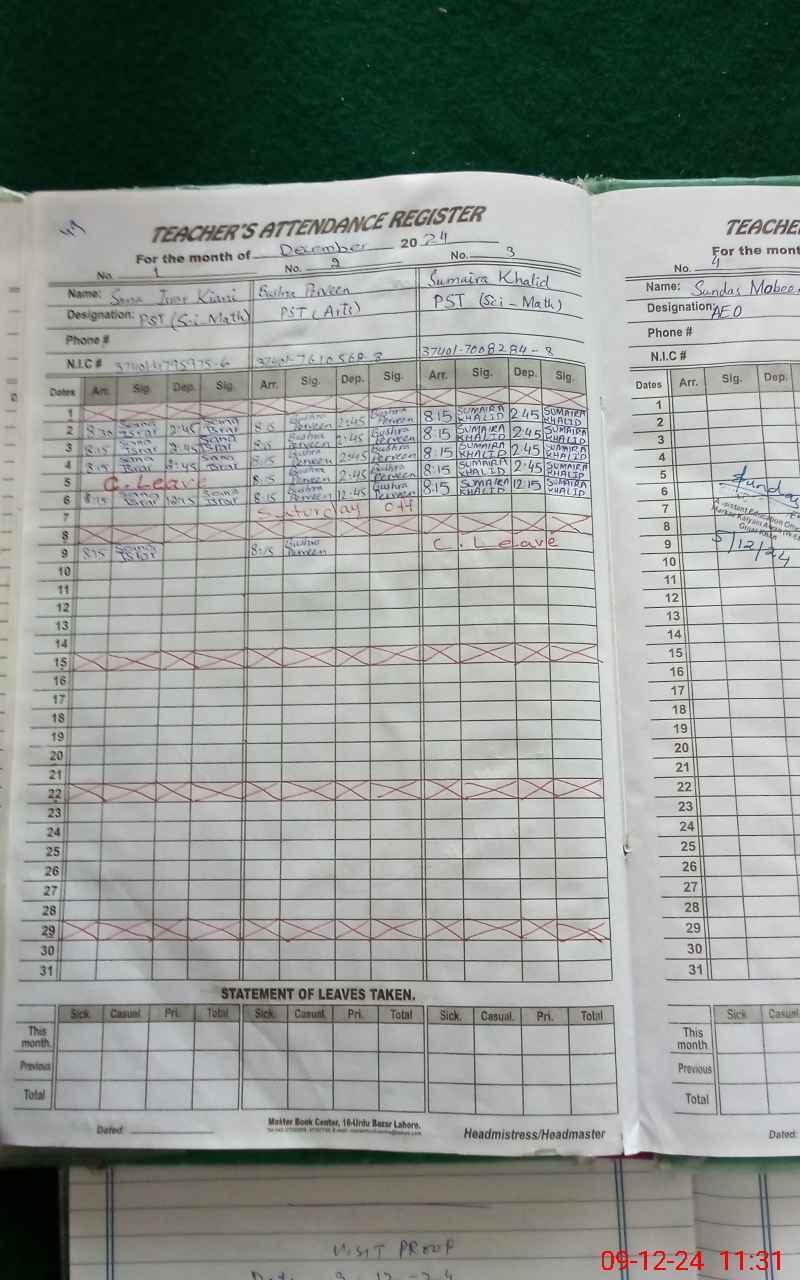 TEACHER'S ATTENDANCE REGISTER
For the month of December 2024
No. 1 No. 2 No. 3
Name: Sana Israr Kiani Bushra Perveen Sumaira Khalid
Designation: PST (Sci-Math) PST (Arts) PST (Sci-Math)
Phone #
N.I.C # 37401-7610568-8 37401-7008284-8
Dates Arr. Sig. Dep. Sig. Arr. Sig. Dep. Sig. Arr. Sig. Dep. Sig.
1
2 8:30 Sana Israr 2:45 Sana Israr 8:15 Bushra Perveen 2:45 Bushra Perveen 8:15 SUMAIRA KHALID 2:45 SUMAIRA KHALID
3 8:15 Sana Israr 2:45 Sana Israr 8:15 Bushra Perveen 2:45 Bushra Perveen 8:15 SUMAIRA KHALID 2:45 SUMAIRA KHALID
4 8:15 Sana Israr 2:45 Sana Israr 8:15 Bushra Perveen 2:45 Bushra Perveen 8:15 SUMAIRA KHALID 2:45 SUMAIRA KHALID
5 C.Leave 8:15 Bushra Perveen 2:45 Bushra Perveen 8:15 SUMAIRA KHALID 2:45 SUMAIRA KHALID
6 8:15 Sana Israr 12:15 Sana Israr 8:15 Bushra Perveen 12:45 Bushra Perveen 8:15 SUMAIRA KHALID 12:15 SUMAIRA KHALID
7 Saturday off
8
9 8:15 Sana Israr 8:15 Bushra Perveen C.Leave
10
11
12
13
14
15
16
17
18
19
20
21
22
23
24
25
26
27
28
29
30
31
STATEMENT OF LEAVES TAKEN.
Sick. Casual. Pri. Total Sick. Casual. Pri. Total Sick. Casual. Pri. Total
This month.
Previous
Total
Dated:
Master Book Center, 16-Urdu Bazar Lahore.
Headmistress/Headmaster
TEACHE
For the mont
No. 4
Name: Sundas Mobee
Designation: AEO
Phone #
N.I.C #
Dates Arr. Sig. Dep.
1
2
3
4
5
6 Sundas
7
8
9 5/12/24
10
11
12
13
14
15
16
17
18
19
20
21
22
23
24
25
26
27
28
29
30
31
Sick Casual
This month
Previous
Total
Dated:
VISIT PROOF
Date: 9-12-24
09-12-24 11:31